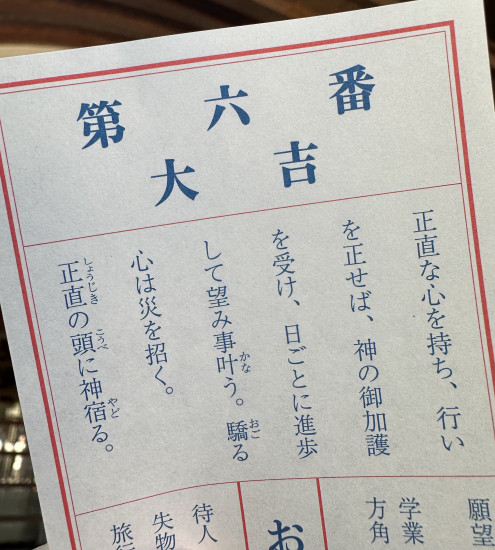 第六番
大吉
正直な心を持ち、行い
を正せば、神の御加護
を受け、日ごとに進歩
して望み事叶う。驕る
心は災を招く。
正直の頭に神宿る。
願望
学業
方角
お
待人
失物
旅行